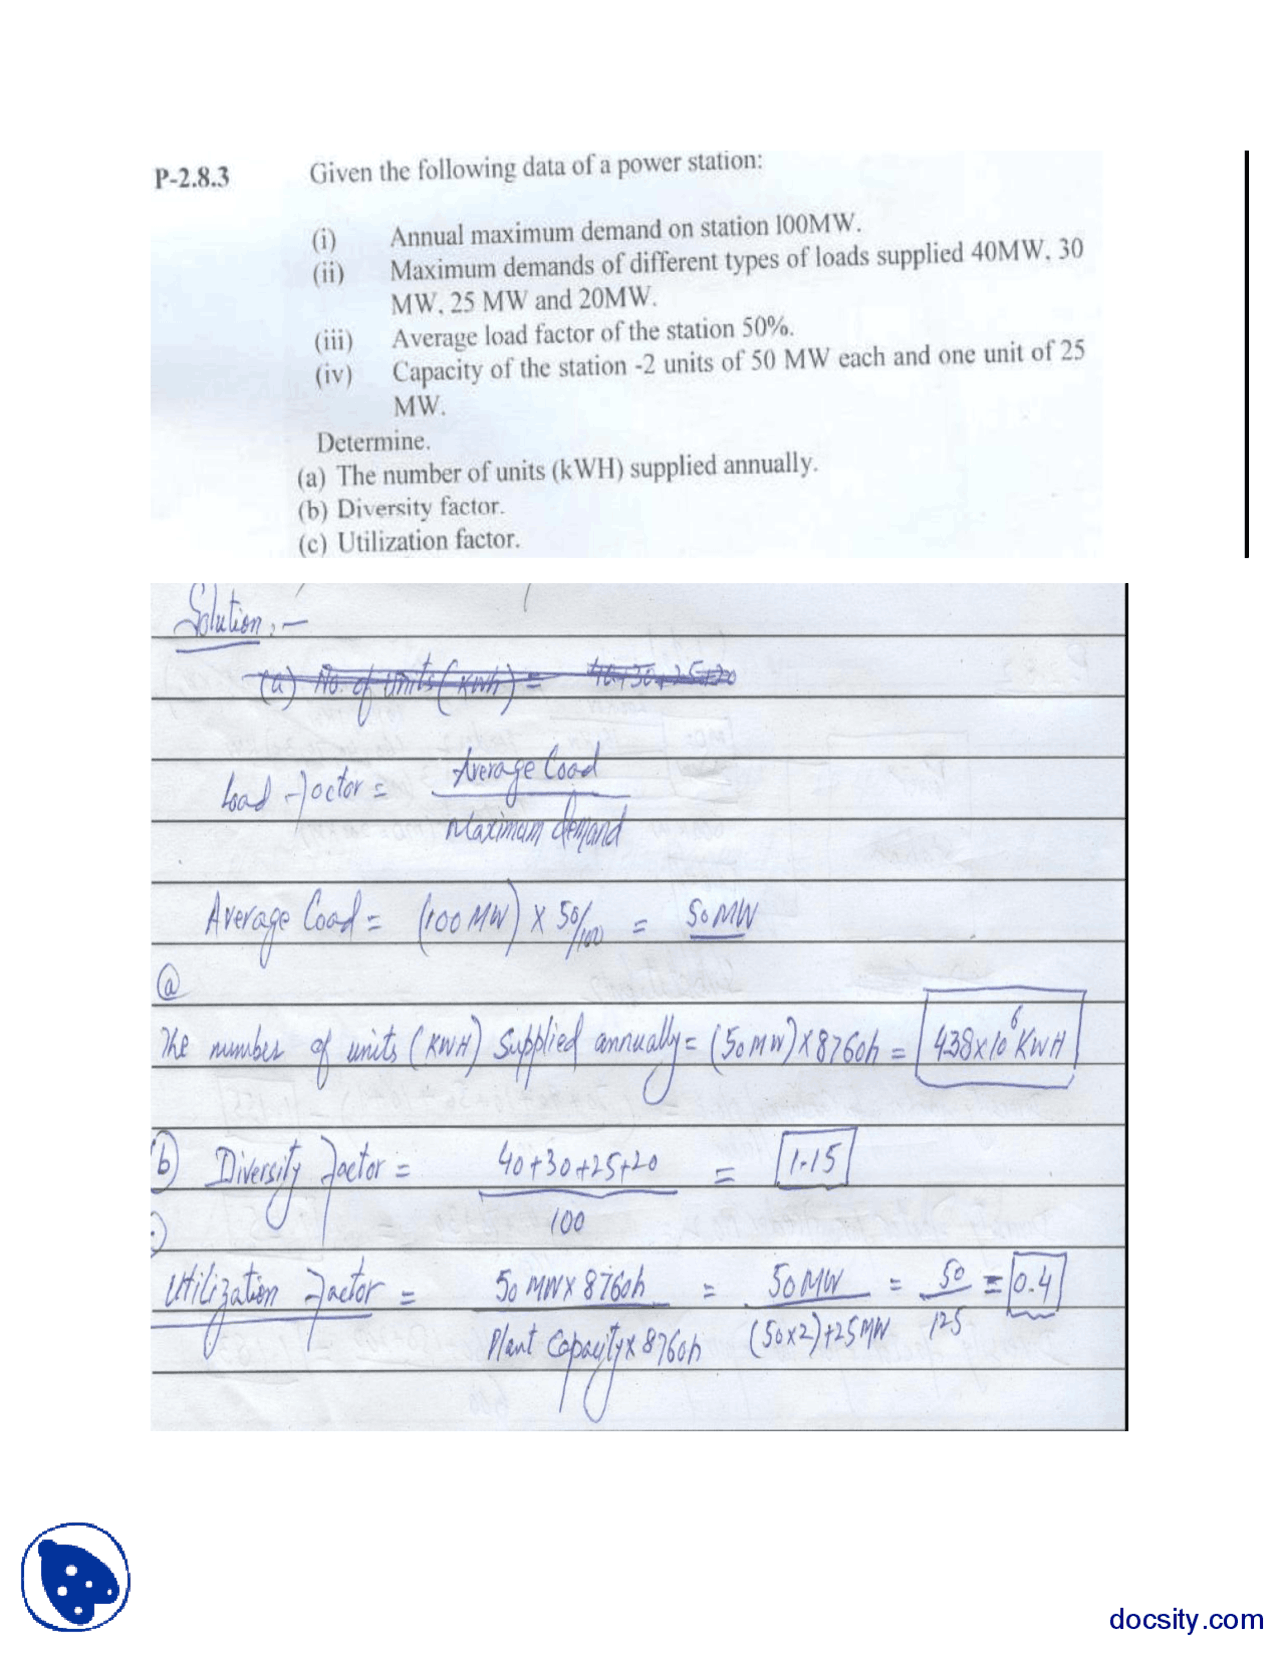 P-2.8.3 Given the following data of a power station:
(i) Annual maximum demand on station 100MW.
(ii) Maximum demands of different types of loads supplied 40MW, 30
MW, 25 MW and 20MW.
(iii) Average load factor of the station 50%.
(iv) Capacity of the station -2 units of 50 MW each and one unit of 25
MW.
Determine.
(a) The number of units (kWH) supplied annually.
(b) Diversity factor.
(c) Utilization factor.
Solution :-
(a) No. of units (KWh) = 40+30+25+20
Load Factor = Average Load
Maximum demand
Average Load = (100 MW) x 50/100 = 50 MW
(a)
The number of units (KWH) Supplied annually = (50 MW) x 8760h = 438x10^6 KWH
(b) Diversity Factor = 40+30+25+20 = 1.15
100
Utilization Factor = 50 MW x 8760h = 50 MW = 50 = 0.4
Plant Capacity x 8760h (50x2)+25MW 125
docsity.com